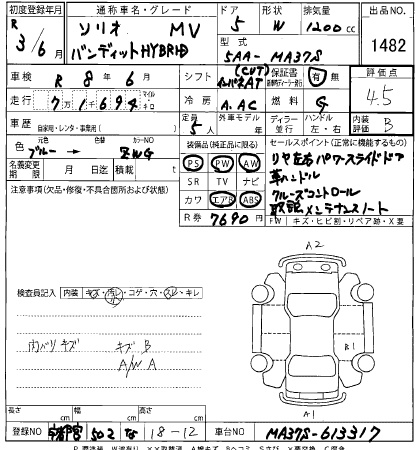 初度登録年月 通称車名・グレード ドア 形状 排気量 出品NO
R 3/6月 ソリオ MV 5 W 1200cc 1482
バンディットHYBRID 型式 5AA-MA37S
車検 R 8年 6月 シフト (CVT) AT 保証書 有・無 評価点
走行 7 1 6 9 4 マイル キロ 冷房 A.AC 燃料 G 4.5
車歴 自家用・レンタ・事業用( ) 定員 5人 外車モデル ディーラー 並行 ハンドル 左・右 内装評価 B
色 元色 ブルー → 色替 カラーNO ZWG 装備品(純正品に限る) セールスポイント(正常に機能するもの)
PS PW AW リヤ左右パワースライドドア
名義変更期限 月 日迄 積載 t SR TV ナビ 革ハンドル
注意事項(欠品・修復・不具合箇所および状態) カワ エアB ABS クルーズコントロール
R券 7690円 取説 メンテナンスノート
FW キズ・ヒビ割・リペア跡・X要
A2
検査員記入 内装 キズ・汚レ・コゲ・穴・スレ・キレ
内バリキズ キズB B1
A/W A
A1
長さ cm 幅 cm 高さ cm
登録NO 宇都宮 502 な 18-12 車台NO MA37S-613317